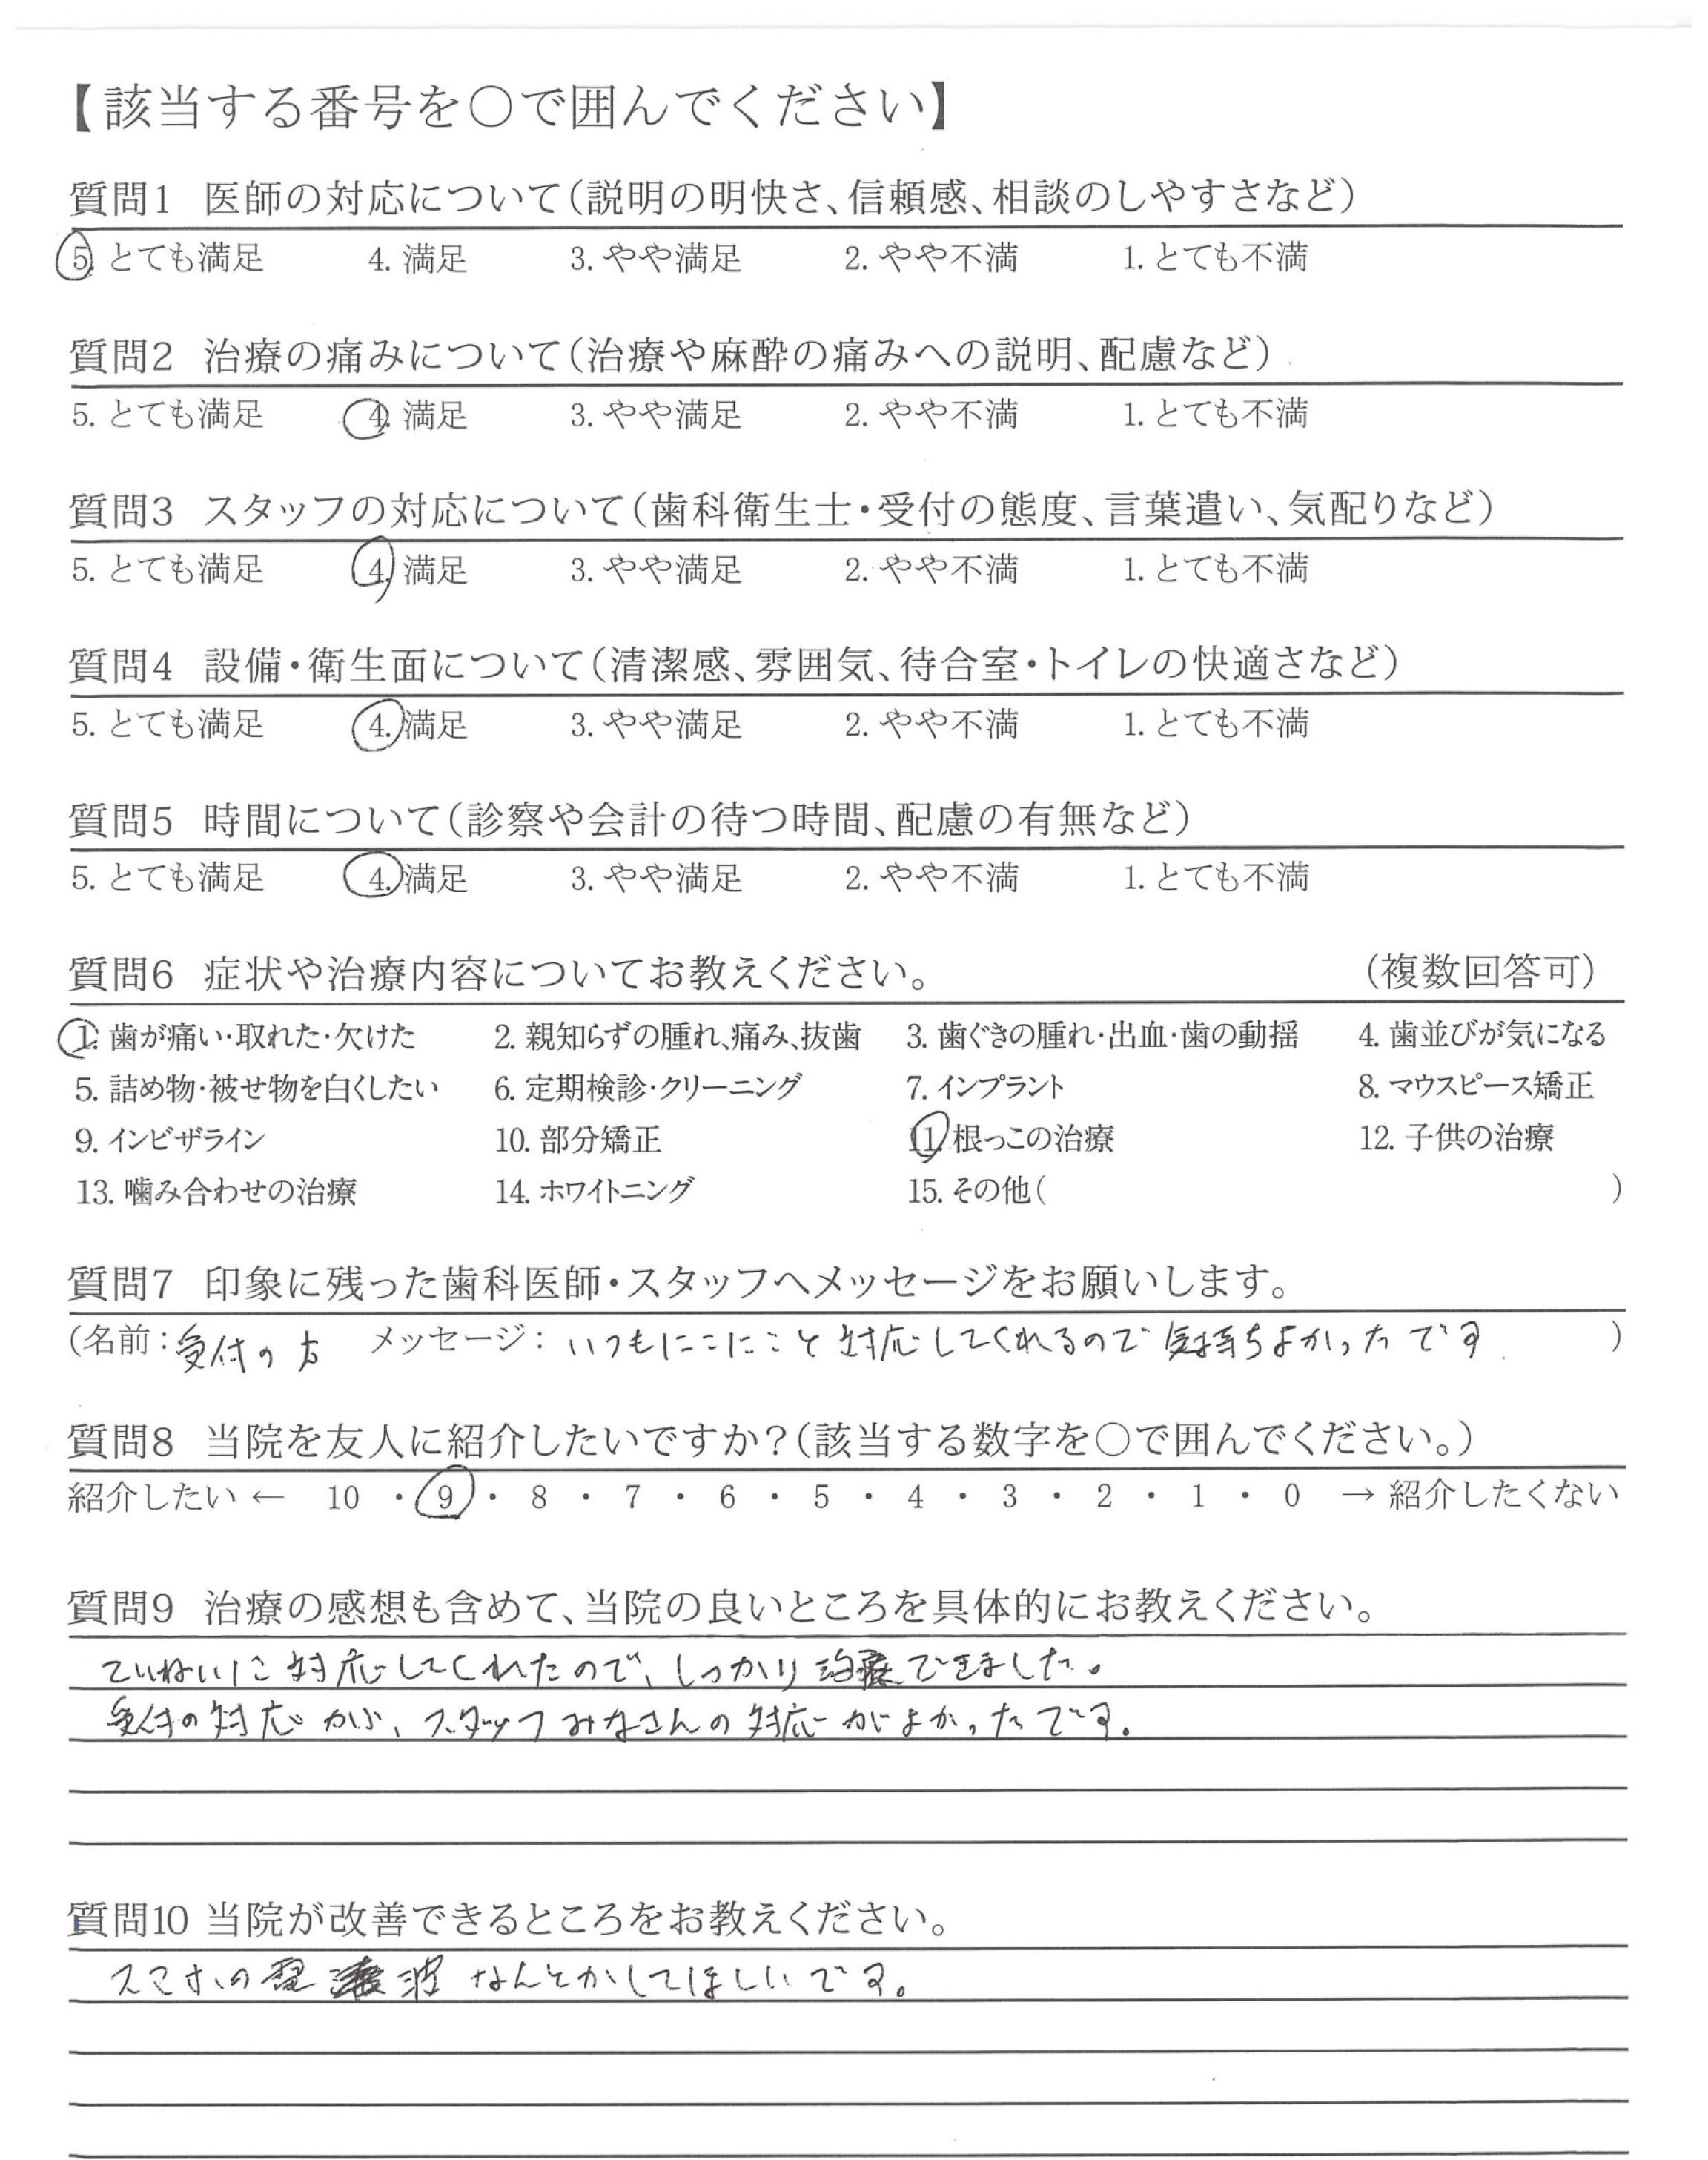 【該当する番号を○で囲んでください】
質問1 医師の対応について（説明の明快さ、信頼感、相談のしやすさなど）
5. とても満足 4. 満足 3. やや満足 2. やや不満 1. とても不満
質問2 治療の痛みについて（治療や麻酔の痛みへの説明、配慮など）
5. とても満足 4. 満足 3. やや満足 2. やや不満 1. とても不満
質問3 スタッフの対応について（歯科衛生士・受付の態度、言葉遣い、気配りなど）
5. とても満足 4. 満足 3. やや満足 2. やや不満 1. とても不満
質問4 設備・衛生面について（清潔感、雰囲気、待合室・トイレの快適さなど）
5. とても満足 4. 満足 3. やや満足 2. やや不満 1. とても不満
質問5 時間について（診察や会計の待つ時間、配慮の有無など）
5. とても満足 4. 満足 3. やや満足 2. やや不満 1. とても不満
質問6 症状や治療内容についてお教えください。 （複数回答可）
1. 歯が痛い・取れた・欠けた 2. 親知らずの腫れ、痛み、抜歯 3. 歯ぐきの腫れ・出血・歯の動揺 4. 歯並びが気になる
5. 詰め物・被せ物を白くしたい 6. 定期検診・クリーニング 7. インプラント 8. マウスピース矯正
9. インビザライン 10. 部分矯正 11. 根っこの治療 12. 子供の治療
13. 噛み合わせの治療 14. ホワイトニング 15. その他（ ）
質問7 印象に残った歯科医師・スタッフへメッセージをお願いします。
（名前：受付の方 メッセージ：いつもにこにこと対応してくれるので気持ちよかったです. ）
質問8 当院を友人に紹介したいですか？（該当する数字を○で囲んでください。）
紹介したい ← 10 ・ 9 ・ 8 ・ 7 ・ 6 ・ 5 ・ 4 ・ 3 ・ 2 ・ 1 ・ 0 → 紹介したくない
質問9 治療の感想も含めて、当院の良いところを具体的にお教えください。
ていねいに対応してくれたので、しっかり治療できました。
受付の対応から、スタッフみなさんの対応がよかったです。
質問10 当院が改善できるところをお教えください。
スマホの電波なんとかしてほしいです。